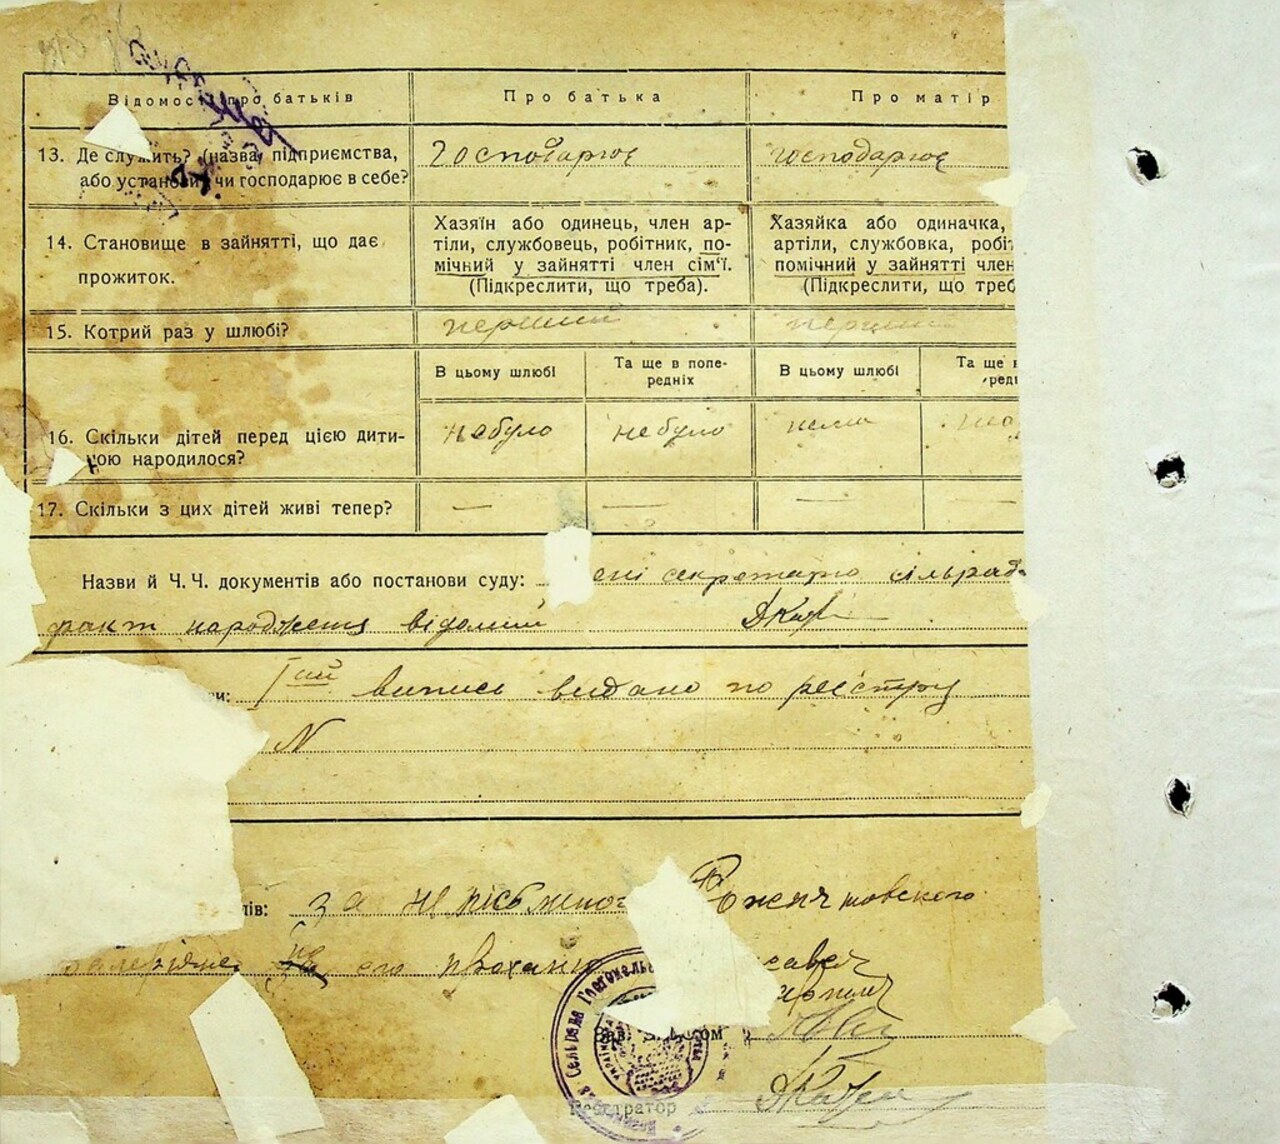 Відомості про батьків
Про батька
Про матір
13. Де служить? (назва) підприємства,
або установи, чи господарює в себе?
господарює
господарює
14. Становище в зайнятті, що дає
прожиток.
Хазяїн або одинець, член ар-
тіли, службовець, робітник, по-
мічний у зайнятті член сім'ї.
(Підкреслити, що треба).
Хазяйка або одиначка,
артіли, службовка, робіт
помічний у зайнятті член
(Підкреслити, що треб
15. Котрий раз у шлюбі?
перший
перший
В цьому шлюбі
Та ще в попе-
редніх
В цьому шлюбі
Та ще
редн
16. Скільки дітей перед цією дити-
ною народилося?
небуло
небуло
нема
17. Скільки з цих дітей живі тепер?
— — — —
Назви й Ч. Ч. документів або постанови суду:
ені секретарю сільрад
факт народження відомий
ри: Iший випись видано по реєстру
N
лів: за не письменого Роженчковского
его прохан
Зав. ЗАГСом
Реєстратор